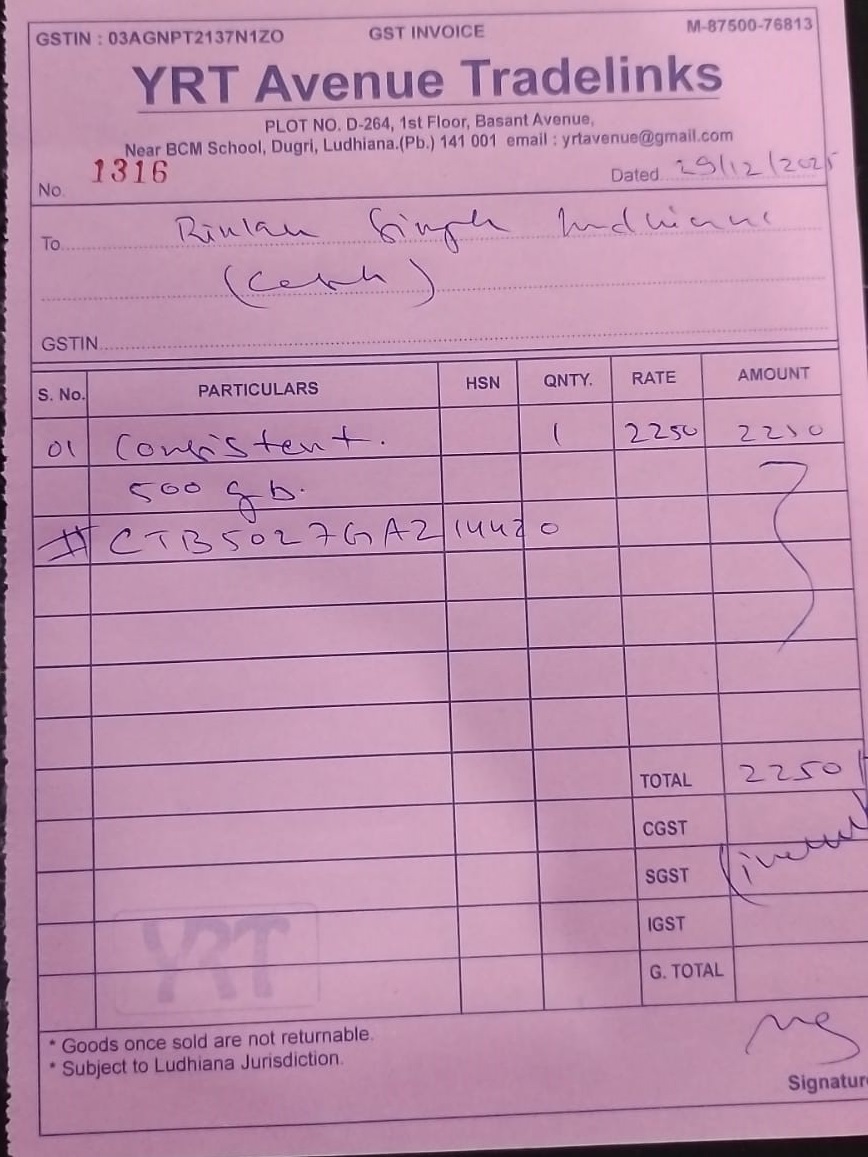 GSTIN : 03AGNPT2137N1ZO GST INVOICE M-87500-76813
YRT Avenue Tradelinks
PLOT NO. D-264, 1st Floor, Basant Avenue,
Near BCM School, Dugri, Ludhiana.(Pb.) 141 001 email : yrtavenue@gmail.com
No. 1316 Dated 29/12/2025
To Singh Ludhiana
(Cash)
GSTIN
S. No. PARTICULARS HSN QNTY. RATE AMOUNT
01 Consistent. 1 2250 2250
500 gb.
# CTB5027GA214420
TOTAL 2250
CGST
SGST
IGST
G. TOTAL
YRT
* Goods once sold are not returnable.
* Subject to Ludhiana Jurisdiction.
Signature